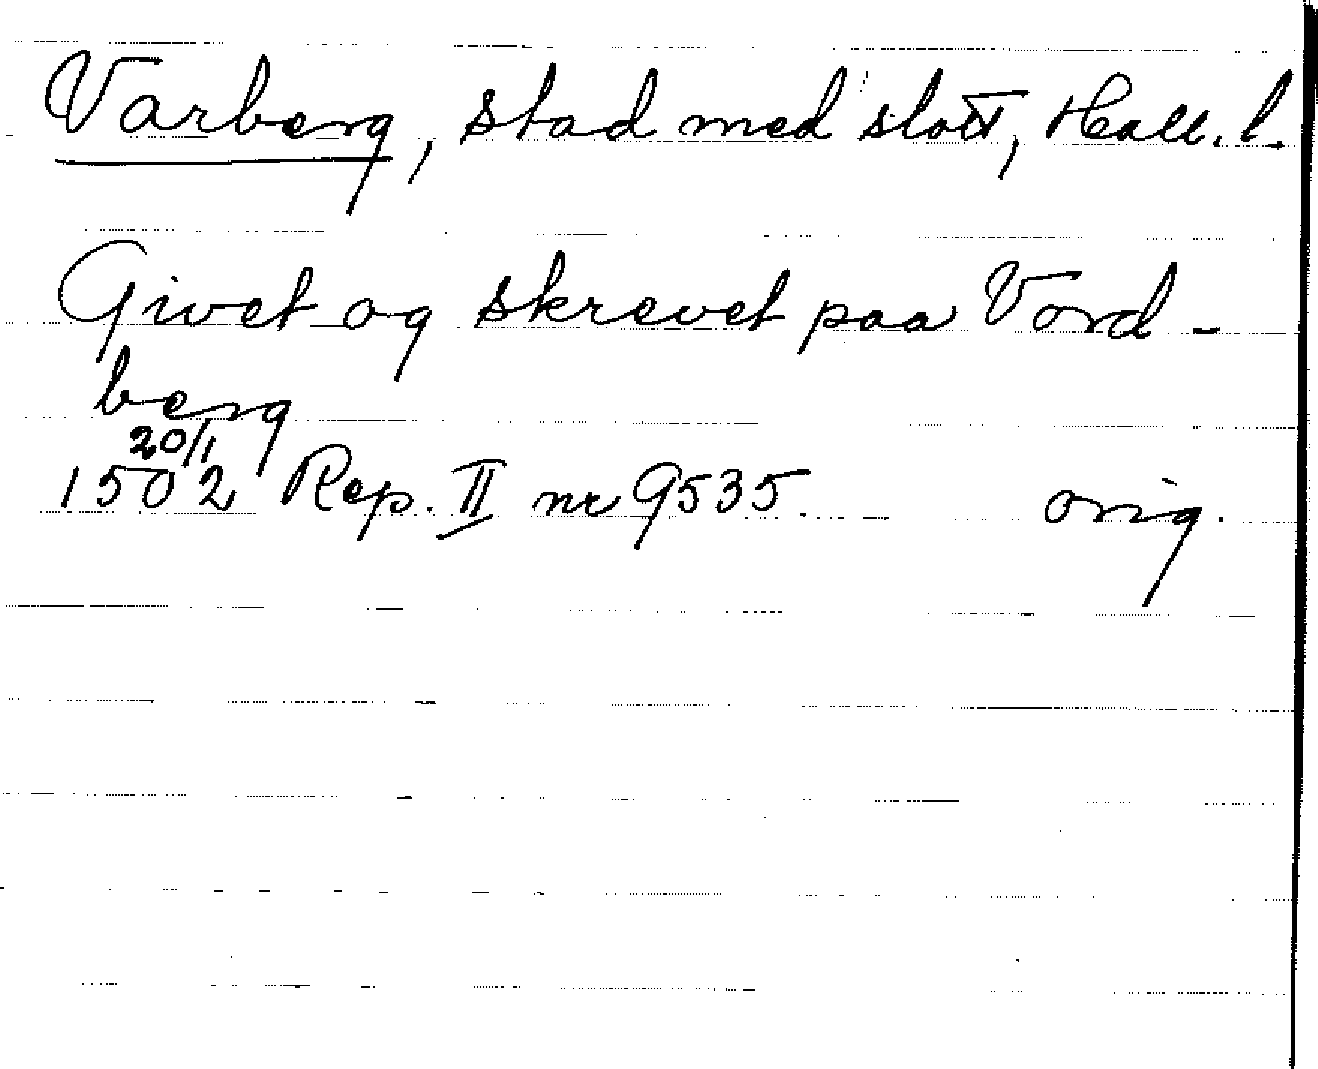 Varberg, stad med slott, Hall. l.
Givet og skrevet paa Vord-
berg
20/1
1502 Rep. II nr 9535. orig.